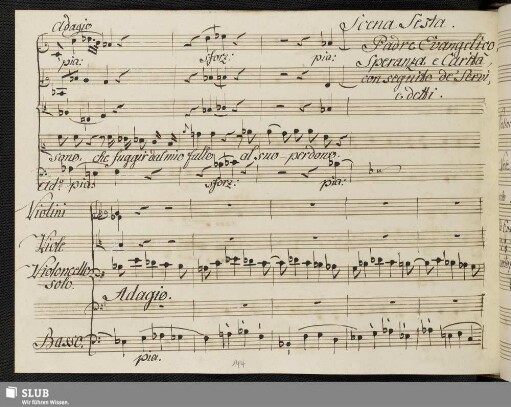 Adagio
Scena Sesta.
Padre Evangelico
Speranza, e Carità,
con seguito de' Servi,
e detti.
pia: sforz: pia:
sono, che fuggir dal mio fallo, al suo perdono.
Ad.º pia: sforz: pia:
Violini
Viole
Violoncello
solo.
Adagio.
Basso.
pia.
SLUB
Wir führen Wissen.